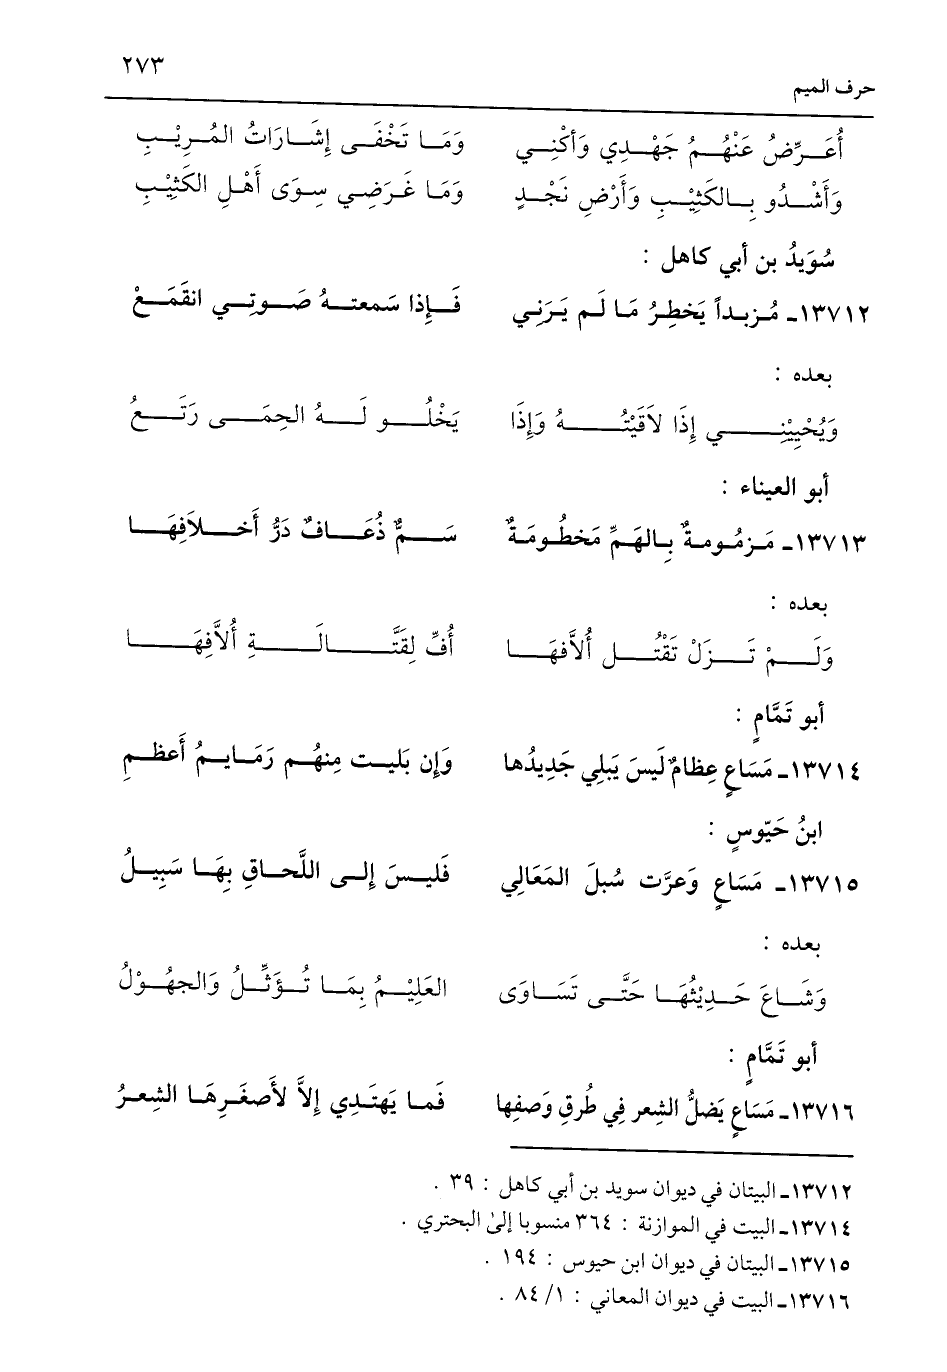 حرف الميم ٢٧٣
أُعَرِّضُ عَنْهُمُ جَهْدِي وَأكْنِي وَمَا تَخْفَى إِشَارَاتُ المُرِيْبِ
وَأَشْدُو بِالكَثِيْبِ وَأَرْضِ نَجْدٍ وَمَا غَرَضِي سِوَى أَهْلِ الكَثِيْبِ
سُوَيدُ بن أبي كاهل :
١٣٧١٢ـ مُزبداً يَخطِرُ مَا لَم يَرَنِي فَإِذا سَمعتهُ صَوتِي انقَمَعْ
بعده :
وَيُحْيِيْنِي إِذَا لاَقَيْتُهُ وَإِذَا يَخْلُو لَهُ الحِمَى رَتَعُ
أبو العيناء :
١٣٧١٣ـ مَزمُومةٌ بِالهَمِّ مَخطُومَةٌ سَمٌّ ذُعَافٌ دَرُّ أَخلاَفِهَا
بعده :
وَلَمْ تَزَلْ تَقْتُل أُلاَّفهَا أُفِّ لِقَتَّالَةِ أُلاَّفِهَا
أبو تَمَّامٍ :
١٣٧١٤ـ مَسَاعٍ عِظامٌ لَيسَ يَبلِي جَدِيدُها وَإِن بَليت مِنهُم رَمَايمُ أَعظمِ
ابنُ حَيّوسٍ :
١٣٧١٥ـ مَسَاعٍ وَعرَّت سُبلَ المَعَالِي فَليسَ إِلى اللَّحاقِ بِهَا سَبِيلُ
بعده :
وَشَاعَ حَدِيْثُهَا حَتَّى تَسَاوَى العَلِيْمُ بِمَا تُؤَثِّلُ وَالجهُوْلُ
أبو تَمَّامٍ :
١٣٧١٦ـ مَسَاعٍ يَضلُّ الشِعر فِي طُرقِ وَصفِها فَما يَهتَدِي إِلاَّ لأَصغَرِهَا الشِعرُ
١٣٧١٢ـ البيتان في ديوان سويد بن أبي كاهل : ٣٩ .
١٣٧١٤ـ البيت في الموازنة : ٣٦٤ منسوبا إلىٰ البحتري .
١٣٧١٥ـ البيتان في ديوان ابن حيوس : ١٩٤ .
١٣٧١٦ـ البيت في ديوان المعاني : ١/ ٨٤ .